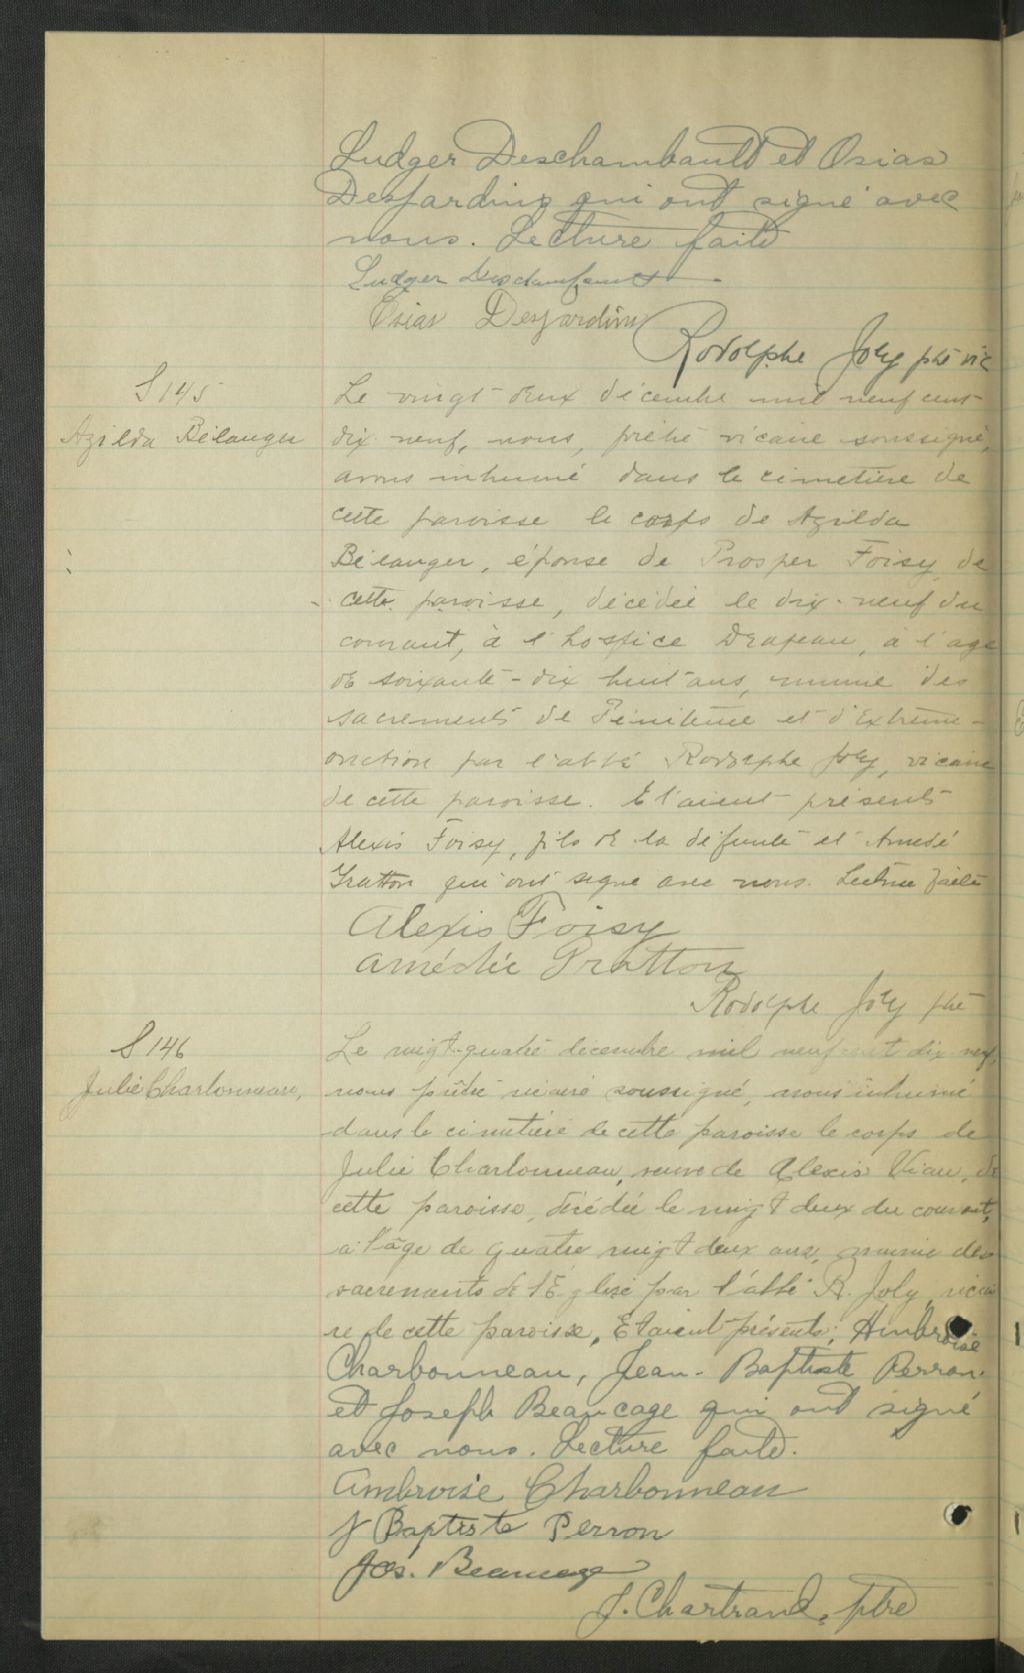 Ludger Deschambault et Osias
Desjardins qui ont signé avec
nous. Lecture faite
Ludger Deschambault
Osias Desjardins
Rodolphe Joly ptre vic
S 145
Azilda Bélanger
Le vingt deux décembre mil neuf cent
dix neuf, nous, prêtre vicaire soussigné,
avons inhumé dans le cimetière de
cette paroisse le corps de Azilda
Bélanger, épouse de Prosper Foisy, de
cette paroisse, décédée le dix-neuf du
courant, à l'hospice Drapeau, à l'age
de soixante-dix huit ans, munie des
sacrements de Pénitence et d'Extrême-
onction par l'abbé Rodolphe Joly, vicaire
de cette paroisse. Etaient présents
Alexis Foisy, fils de la défunte et Amédé
Gratton qui ont signé avec nous. Lecture faite
Alexis Foisy
Amédée Gratton
Rodolphe Joly ptre
S 146
Julie Charbonneau,
Le vingt-quatre décembre mil neuf cent dix neuf,
nous prêtre vicaire soussigné, avons inhumé
dans le cimetière de cette paroisse le corps de
Julie Charbonneau, veuve de Alexis Viau, de
cette paroisse, décédée le vingt deux du courant,
a l'âge de quatre vingt deux ans, munie des
sacrements de l'Eglise par l'abbé R. Joly, vicai
re de cette paroisse, Etaient présents; Ambroise
Charbonneau, Jean-Baptiste Perron
et Joseph Beaucage qui ont signé
avec nous. Lecture faite.
Ambroise Charbonneau
J Baptiste Perron
Jos. Beaucage
J. Chartrand, ptre